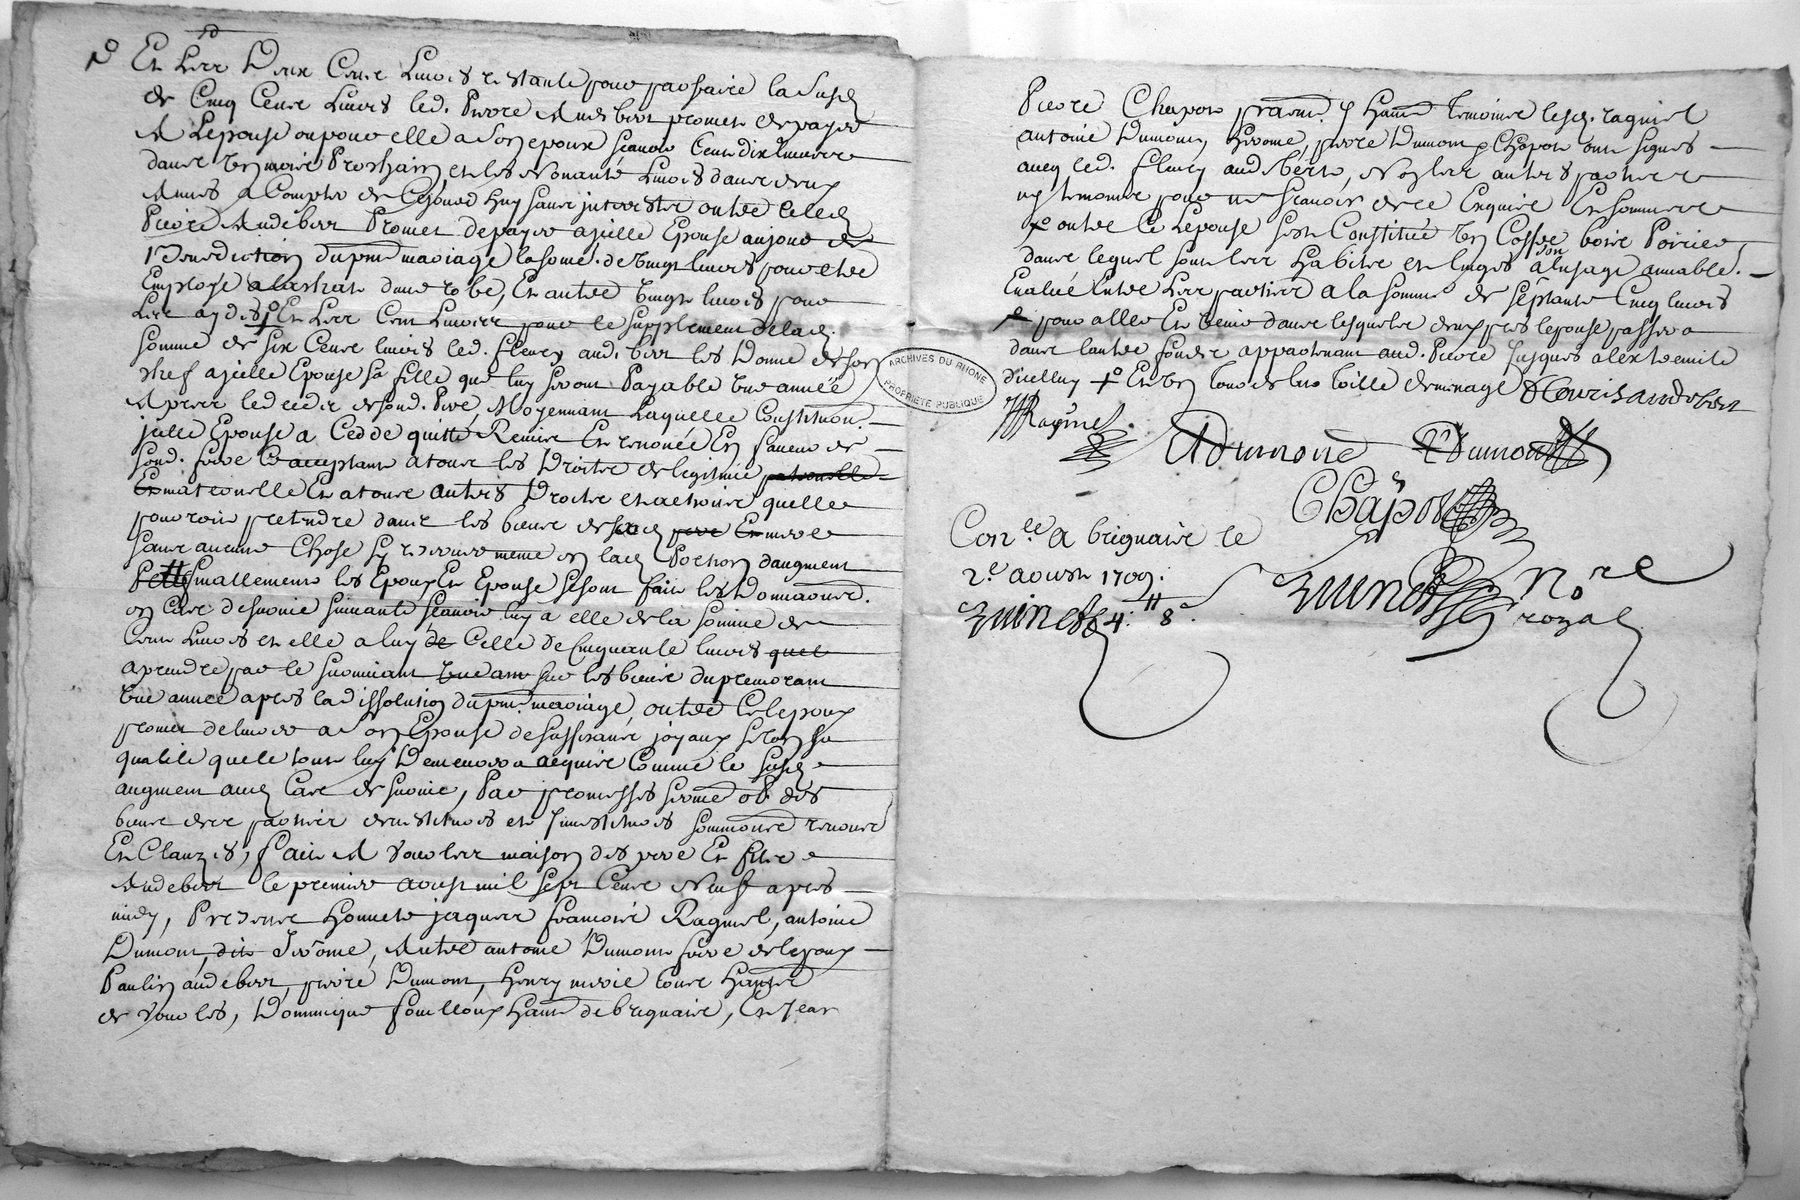 Et les Deux Cent Livres restante pour parfaire la Susd
de Cinq Cent Livres led. Pierre Audebert promet de payer
A Lepouse ou pour elle a son epoux scavoir Cent dix livres
dans un mois Prochain, et les nonante Livres dans deux
Annes a Compter de Cejourd huy sans interestz outre ce led
Pierre Audebert Promet de payer a jcelle Epouse au jour de
Benediction du pnt mariage la some de vingt livres pour etre
Employé a lachat dune robe, Et autre vingt livres pour
Les Et Les Cent Livres pour le supplement de lad.
somme de six Cent livres led. fleury aud. bert les Donne de son
chef a jcelle Epouse sa fille que luy seront Payable une année
Apres led de sond. Pere, Moyennant Laquelle Constitution
jcelle Epouse a Cedde quitté Remis Et renoncé En faveur de
sond. frere acceptant a tous les Droits de legitime paternelle
Et maternelle Et a tous autres Droits et actions quelle
pourroit pretendre dans les biens de sesd pere Et mere
sans aucune Chose sy reserver meme en lad Portion daugment
finallement les Epoux Et Epouse se sont fait les Donnaons.
en Cas de survie suivante scavoir luy a elle de la somme de
Cent Livres et elle a luy de Celle de Cinquante livres
a prendre par le survivant sur les biens du premorant
une année apres la dissolution du pnt mariage, outre Ce lepoux
promet de livrer a son Epouse de suffisants joyaux selon sa
qualité quele tout luy Demeurera acquise Comme le susd
augment aud Cas de survie, Par promesses serment ob des
biens des parties restitues et soumons renons
Et Clauzes, fait A Vourles maison des pere Et fils
Audebert le premier aoust mil sept Cent Neuf apres
midy, Presents honnete jacques francois Raginel, antoine
Dumont, dit Jerome, Autre antoine Dumont frere de lepoux
Paulin audebert, pierre Dumont, henry tous hants
de Vourles, Dominique fouilloux hant de brignais, Et Jean
Pierre Chapot hant temoins lesd. raginel
antoine Dumont, Jerome, pierre Dumont & Chapot ont signes
avec led. fleury audebert, Non les autres parties
ny temoins pour ne scavoir de ce Enquis Et sommes
outre Ce Lepouse sest Constitué un Coffre bois Poirier
dans lequel sont les habits et linges a son usage amable.
Evalué Entre les parties a la somme de septante Cinq livres
pour aller Et venir dans lesquelles deux pres lepouse passera
dans lautre fonds appartenant aud. Pierre jusques a lextremité
dicelluy Et un tour de lit toille de menage fleuris audebert
Raginel
ADumont PDumont
Chapot
Con.lé a brignais le
2.e aoust 1709.
Guinet 4.tt 8.s
Guinet No.re
royal
ARCHIVES DU RHONE
PROPRIETE PUBLIQUE